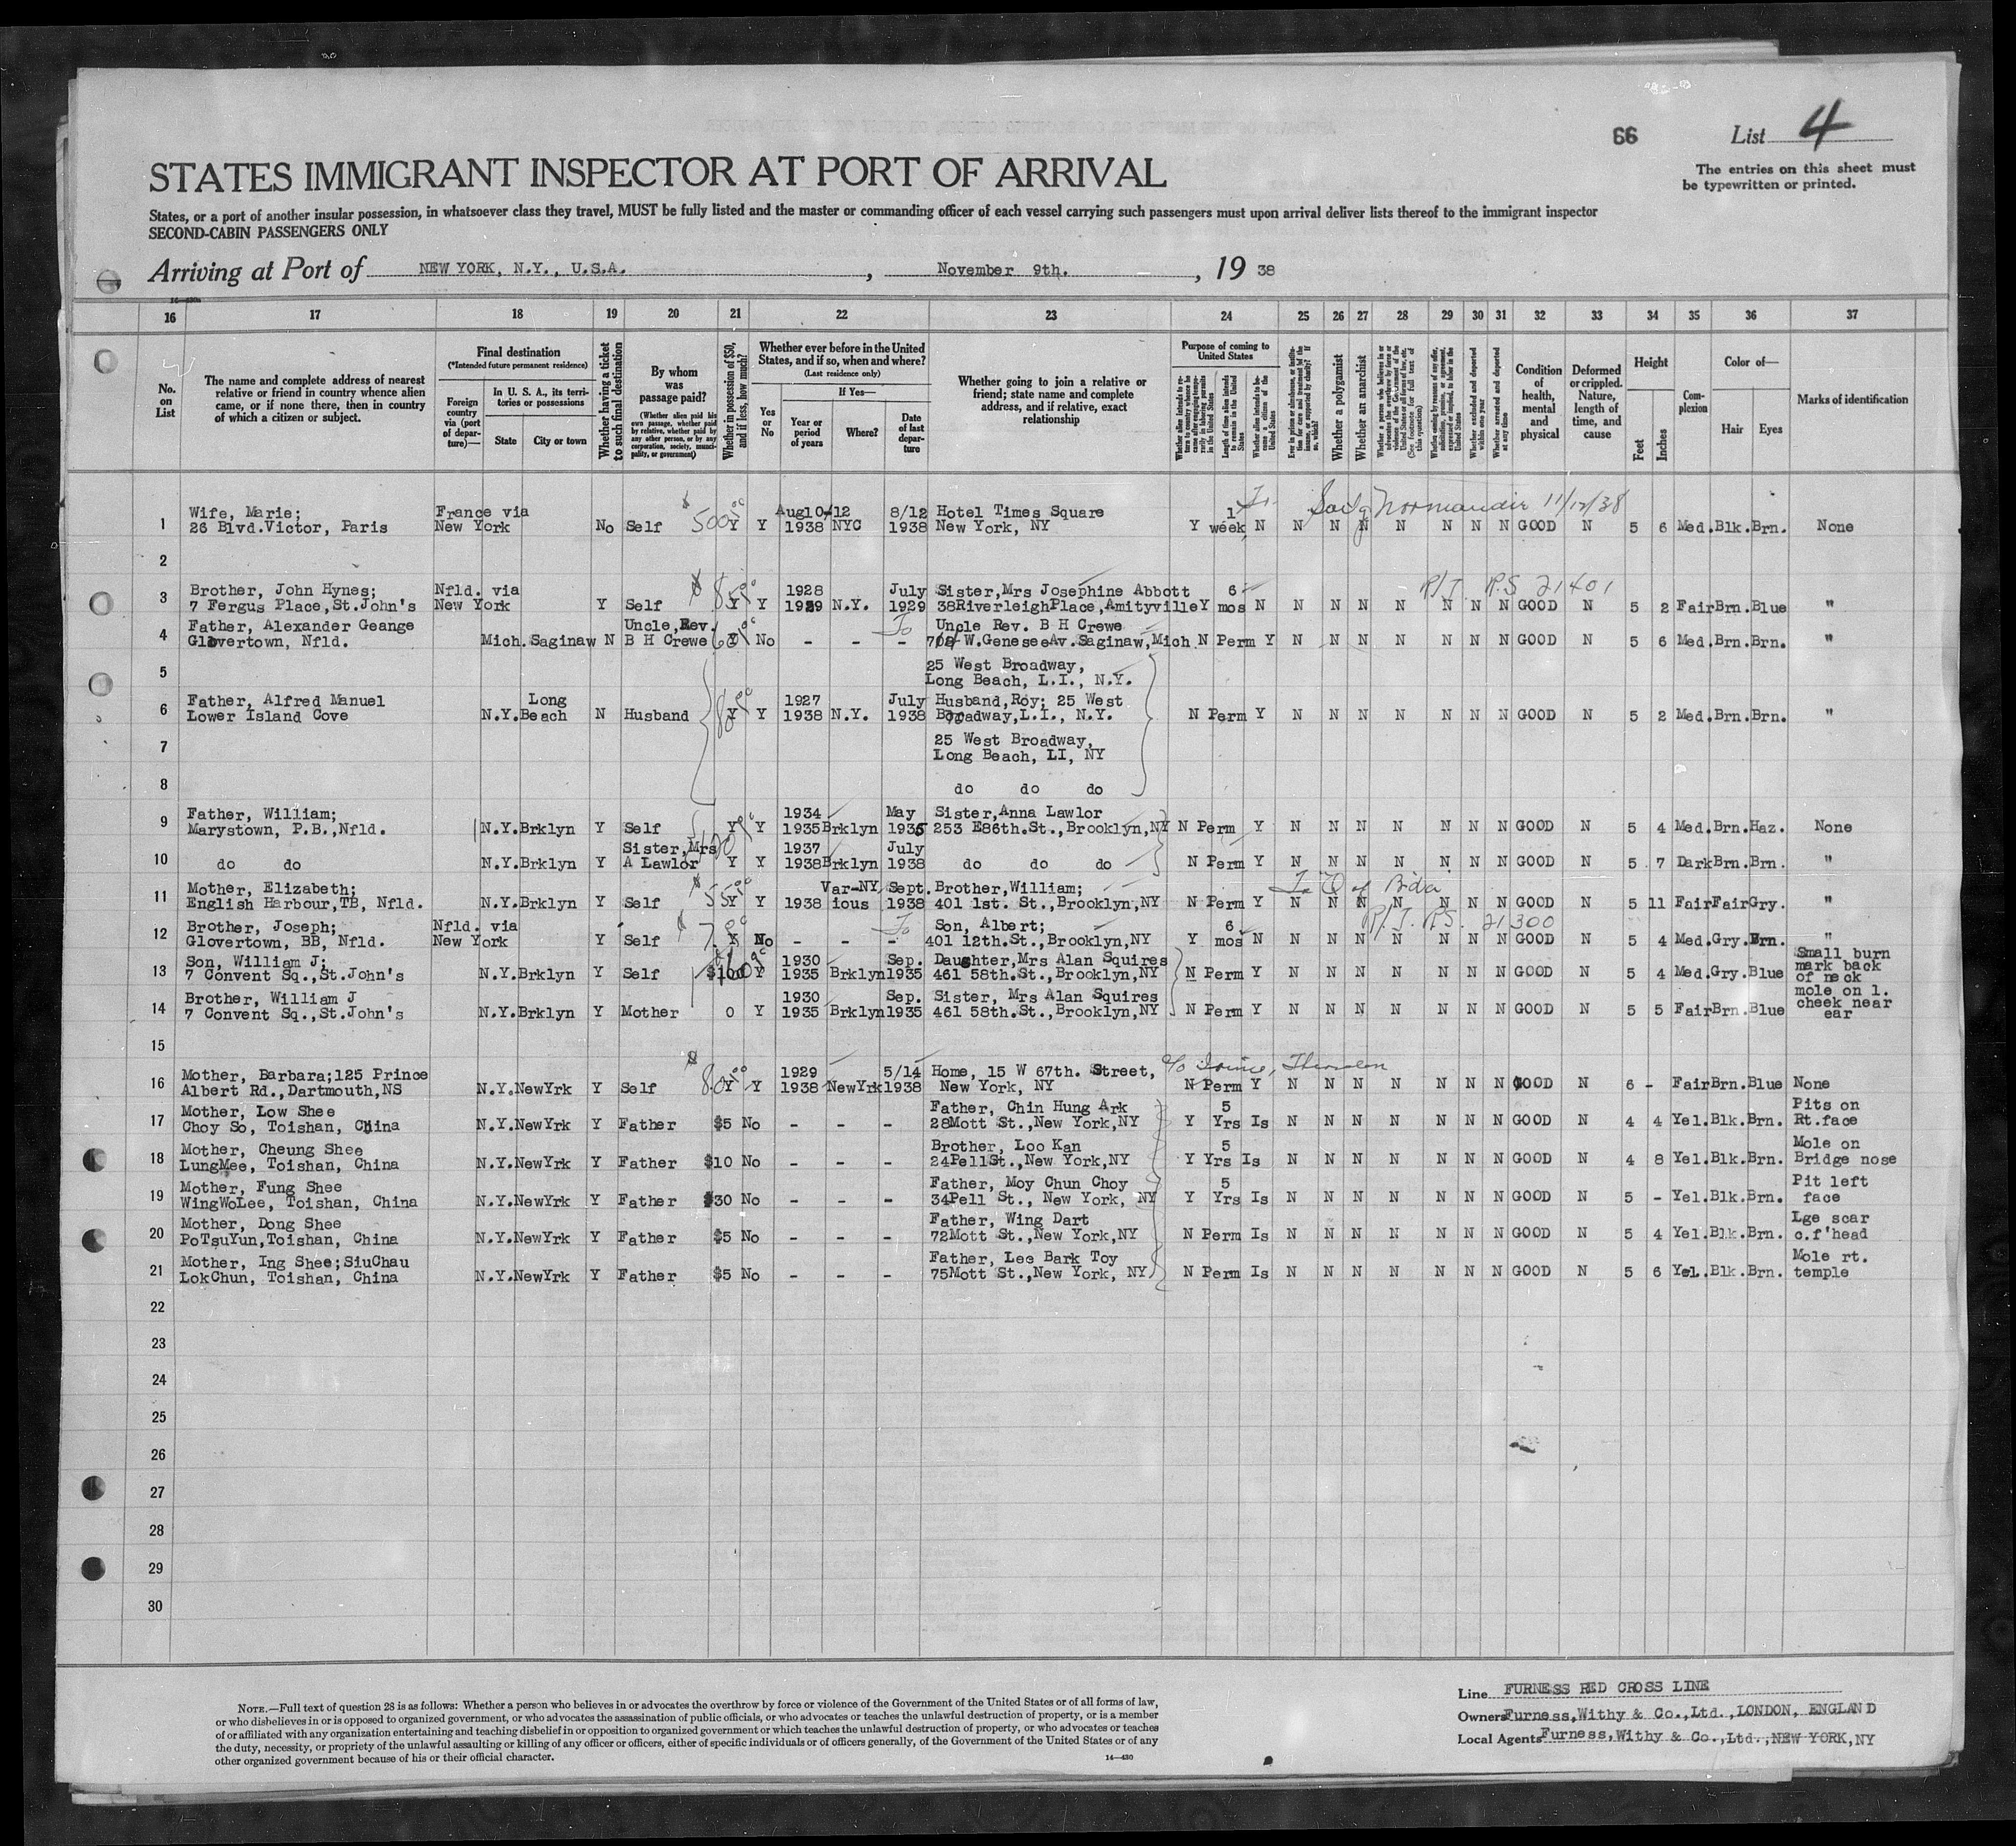 66 List 4
The entries on this sheet must
be typewritten or printed.
STATES IMMIGRANT INSPECTOR AT PORT OF ARRIVAL
States, or a port of another insular possession, in whatsoever class they travel, MUST be fully listed and the master or commanding officer of each vessel carrying such passengers must upon arrival deliver lists thereof to the immigrant inspector
SECOND-CABIN PASSENGERS ONLY
Arriving at Port of NEW YORK, N.Y., U.S.A. , November 9th. , 19 38
16 17 18 19 20 21 22 23 24 25 26 27 28 29 30 31 32 33 34 35 36 37
No. on List
The name and complete address of nearest relative or friend in country whence alien came, or if none there, then in country of which a citizen or subject.
Final destination
(*Intended future permanent residence)
Foreign country via (port of departure)—
In U. S. A., its territories or possessions
State City or town
Whether having a ticket to such final destination
By whom was passage paid?
(Whether alien paid his own passage, whether paid by relative, whether paid by any other person, or by any corporation, society, municipality, or government)
Whether in possession of $50, and if less, how much?
Whether ever before in the United States, and if so, when and where?
(Last residence only)
Yes or No
If Yes—
Year or period of years Where? Date of last departure
Whether going to join a relative or friend; state name and complete address, and if relative, exact relationship
Purpose of coming to United States
Length of time alien intends to remain in the United States
Whether a polygamist
Whether an anarchist
(See footnote for full text of this question)
Whether excluded and deported within one year
Whether arrested and deported at any time
Condition of health, mental and physical
Deformed or crippled. Nature, length of time, and cause
Height
Feet Inches
Complexion
Color of—
Hair Eyes
Marks of identification
Wife, Marie; France via $500.00 Aug10-12 8/12 Hotel Times Square 1 Normandie 11/12/38
1 26 Blvd.Victor, Paris New York No Self Y Y 1938 NYC 1938 New York, NY Y week N N N N N N N N GOOD N 5 6 Med. Blk. Brn. None
2
Brother, John Hynes; Nfld. via $85.00 1928 July Sister,Mrs Josephine Abbott 6 R/T. RS 21401
3 7 Fergus Place,St.John's New York Y Self Y Y 1929 N.Y. 1929 38RiverleighPlace,Amityville Y mos N N N N N N N N GOOD N 5 2 Fair Brn. Blue "
Father, Alexander Geange Uncle,Rev. Uncle Rev. B H Crewe
4 Glovertown, Nfld. Mich. Saginaw N B H Crewe Y No - - - W.GeneseeAv.Saginaw,Mich N Perm Y N N N N N N N GOOD N 5 6 Med. Brn. Brn. "
5 25 West Broadway,
Long Beach, L.I., N.Y.
Father, Alfred Manuel Long 1927 July Husband,Roy; 25 West
6 Lower Island Cove N.Y. Beach N Husband Y Y 1938 N.Y. 1938 Broadway,L.I., N.Y. N Perm Y N N N N N N N GOOD N 5 2 Med. Brn. Brn. "
7 25 West Broadway,
Long Beach, LI, NY
8 do do do
Father, William; 1934 May Sister,Anna Lawlor
9 Marystown, P.B.,Nfld. N.Y. Brklyn Y Self Y Y 1935 Brklyn 1935 253 E86th.St.,Brooklyn,NY N Perm Y N N N N N N N GOOD N 5 4 Med. Brn. Haz. None
Sister,Mrs 1937 July
10 do do N.Y. Brklyn Y A Lawlor Y Y 1938 Brklyn 1938 do do do N Perm Y N N N N N N N GOOD N 5 7 Dark Brn. Brn. "
Mother, Elizabeth; $55.00 Var-NY Sept. Brother,William;
11 English Harbour,TB, Nfld. N.Y. Brklyn Y Self Y Y 1938 ious 1938 401 1st. St.,Brooklyn,NY N Perm Y N N N N N N N GOOD N 5 11 Fair Fair Gry. "
Brother, Joseph; Nfld. via Son, Albert; 6 R/T. RS. 21300
12 Glovertown, BB, Nfld. New York Y Self Y No - - - 401 12th.St.,Brooklyn,NY Y mos N N N N N N N N GOOD N 5 4 Med. Gry. Brn. "
Son, William J; 1930 Sep. Daughter,Mrs Alan Squires Small burn
13 7 Convent Sq.,St.John's N.Y. Brklyn Y Self $100 Y 1935 Brklyn 1935 461 58th.St.,Brooklyn,NY N Perm Y N N N N N N N GOOD N 5 4 Med. Gry. Blue mark back
of neck
Brother, William J 1930 Sep. Sister, Mrs Alan Squires mole on l.
14 7 Convent Sq.,St.John's N.Y. Brklyn Y Mother 0 Y 1935 Brklyn 1935 461 58th.St.,Brooklyn,NY N Perm Y N N N N N N N GOOD N 5 5 Fair Brn. Blue cheek near
ear
15
Mother, Barbara;125 Prince $80.00 1929 5/14 Home, 15 W 67th. Street, c/o
16 Albert Rd.,Dartmouth,NS N.Y. NewYrk Y Self Y Y 1938 NewYrk 1938 New York, NY N Perm Y N N N N N N N GOOD N 6 - Fair Brn. Blue None
Mother, Low Shee Father, Chin Hung Ark 5 Pits on
17 Choy So, Toishan, China N.Y. NewYrk Y Father $5 No - - - 28Mott St.,New York,NY Y Yrs Is N N N N N N N GOOD N 4 4 Yel. Blk. Brn. Rt.face
Mother, Cheung Shee Brother, Loo Kan 5 Mole on
18 LungMee, Toishan, China N.Y. NewYrk Y Father $10 No - - - 24PellSt.,New York,NY Y Yrs Is N N N N N N N GOOD N 4 8 Yel. Blk. Brn. Bridge nose
Mother, Fung Shee Father, Moy Chun Choy 5 Pit left
19 WingWoLee, Toishan, China N.Y. NewYrk Y Father $30 No - - - 34Pell St., New York, NY Y Yrs Is N N N N N N N GOOD N 5 - Yel. Blk. Brn. face
Mother, Dong Shee Father, Wing Dart Lge scar
20 PoTsuYun,Toishan, China N.Y. NewYrk Y Father $5 No - - - 72Mott St.,New York,NY N Perm Is N N N N N N N GOOD N 5 4 Yel. Blk. Brn. c.f'head
Mother, Ing Shee;SiuChau Father, Lee Bark Toy Mole rt.
21 LokChun, Toishan, China N.Y. NewYrk Y Father $5 No - - - 75Mott St.,New York, NY N Perm Is N N N N N N N GOOD N 5 6 Yel. Blk. Brn. temple
22
23
24
25
26
27
28
29
30
NOTE.—Full text of question 28 is as follows: Whether a person who believes in or advocates the overthrow by force or violence of the Government of the United States or of all forms of law,
or who disbelieves in or is opposed to organized government, or who advocates the assassination of public officials, or who advocates or teaches the unlawful destruction of property, or is a member
of or affiliated with any organization entertaining and teaching disbelief in or opposition to organized government or which teaches the unlawful destruction of property, or who advocates or teaches
the duty, necessity, or propriety of the unlawful assaulting or killing of any officer or officers, either of specific individuals or of officers generally, of the Government of the United States or of any
other organized government because of his or their official character.
14—430
Line FURNESS RED CROSS LINE
Owners Furness,Withy & Co.,Ltd.,LONDON, ENGLAND
Local Agents Furness,Withy & Co.,Ltd.,NEW YORK,NY